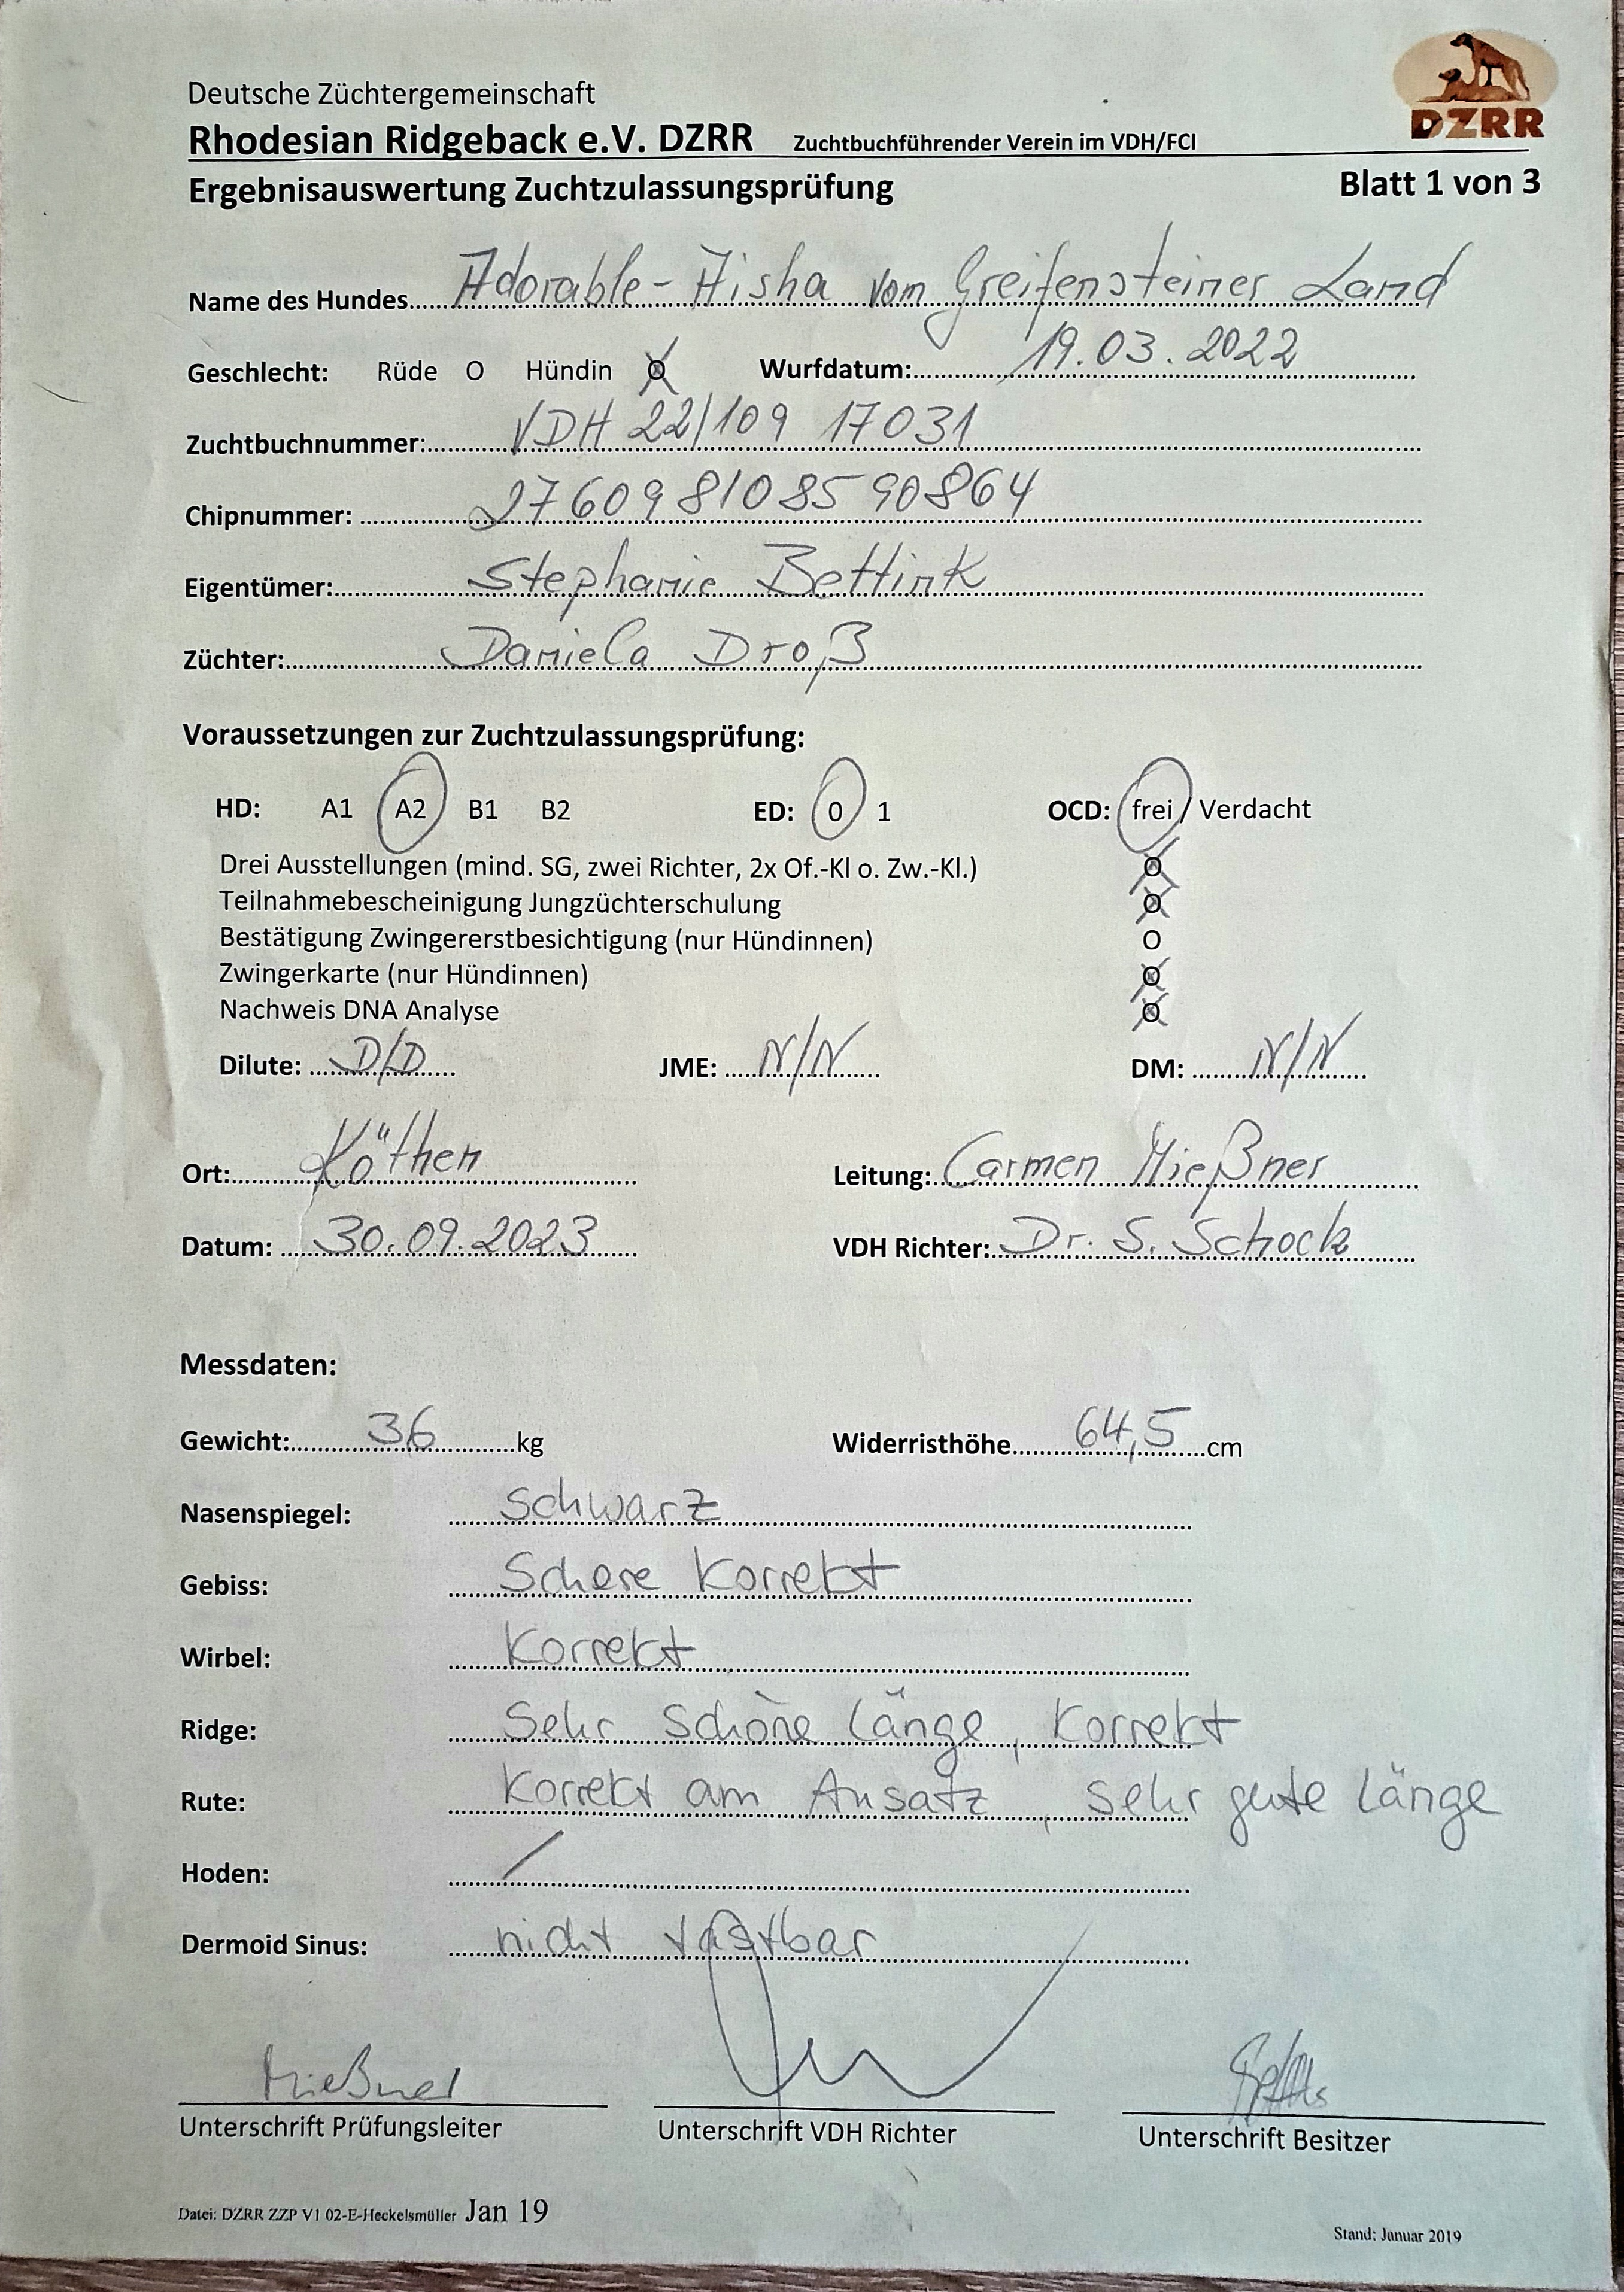 DZRR
Deutsche Züchtergemeinschaft
Rhodesian Ridgeback e.V. DZRR Zuchtbuchführender Verein im VDH/FCI
Ergebnisauswertung Zuchtzulassungsprüfung Blatt 1 von 3
Name des Hundes Adorable-Aisha vom Greifensteiner Land
Geschlecht: Rüde O Hündin O Wurfdatum: 19.03.2022
Zuchtbuchnummer: VDH 22/109 17031
Chipnummer: 276098108590864
Eigentümer: Stephanie Bettink
Züchter: Daniela Droß
Voraussetzungen zur Zuchtzulassungsprüfung:
HD: A1 A2 B1 B2 ED: 0 1 OCD: frei / Verdacht
Drei Ausstellungen (mind. SG, zwei Richter, 2x Of.-Kl o. Zw.-Kl.) O
Teilnahmebescheinigung Jungzüchterschulung O
Bestätigung Zwingererstbesichtigung (nur Hündinnen) O
Zwingerkarte (nur Hündinnen) O
Nachweis DNA Analyse O
Dilute: D/D JME: N/N DM: N/N
Ort: Köthen Leitung: Carmen Mießner
Datum: 30.09.2023 VDH Richter: Dr. S. Schock
Messdaten:
Gewicht: 36 kg Widerristhöhe 64,5 cm
Nasenspiegel: Schwarz
Gebiss: Schere Korrekt
Wirbel: Korrekt
Ridge: Sehr schöne Länge, Korrekt
Rute: Korrekt am Ansatz, sehr gute Länge
Hoden: /
Dermoid Sinus: nicht tastbar
Mießner
Unterschrift Prüfungsleiter Unterschrift VDH Richter Unterschrift Besitzer
Datei: DZRR ZZP V1 02-E-Heckelsmüller Jan 19
Stand: Januar 2019